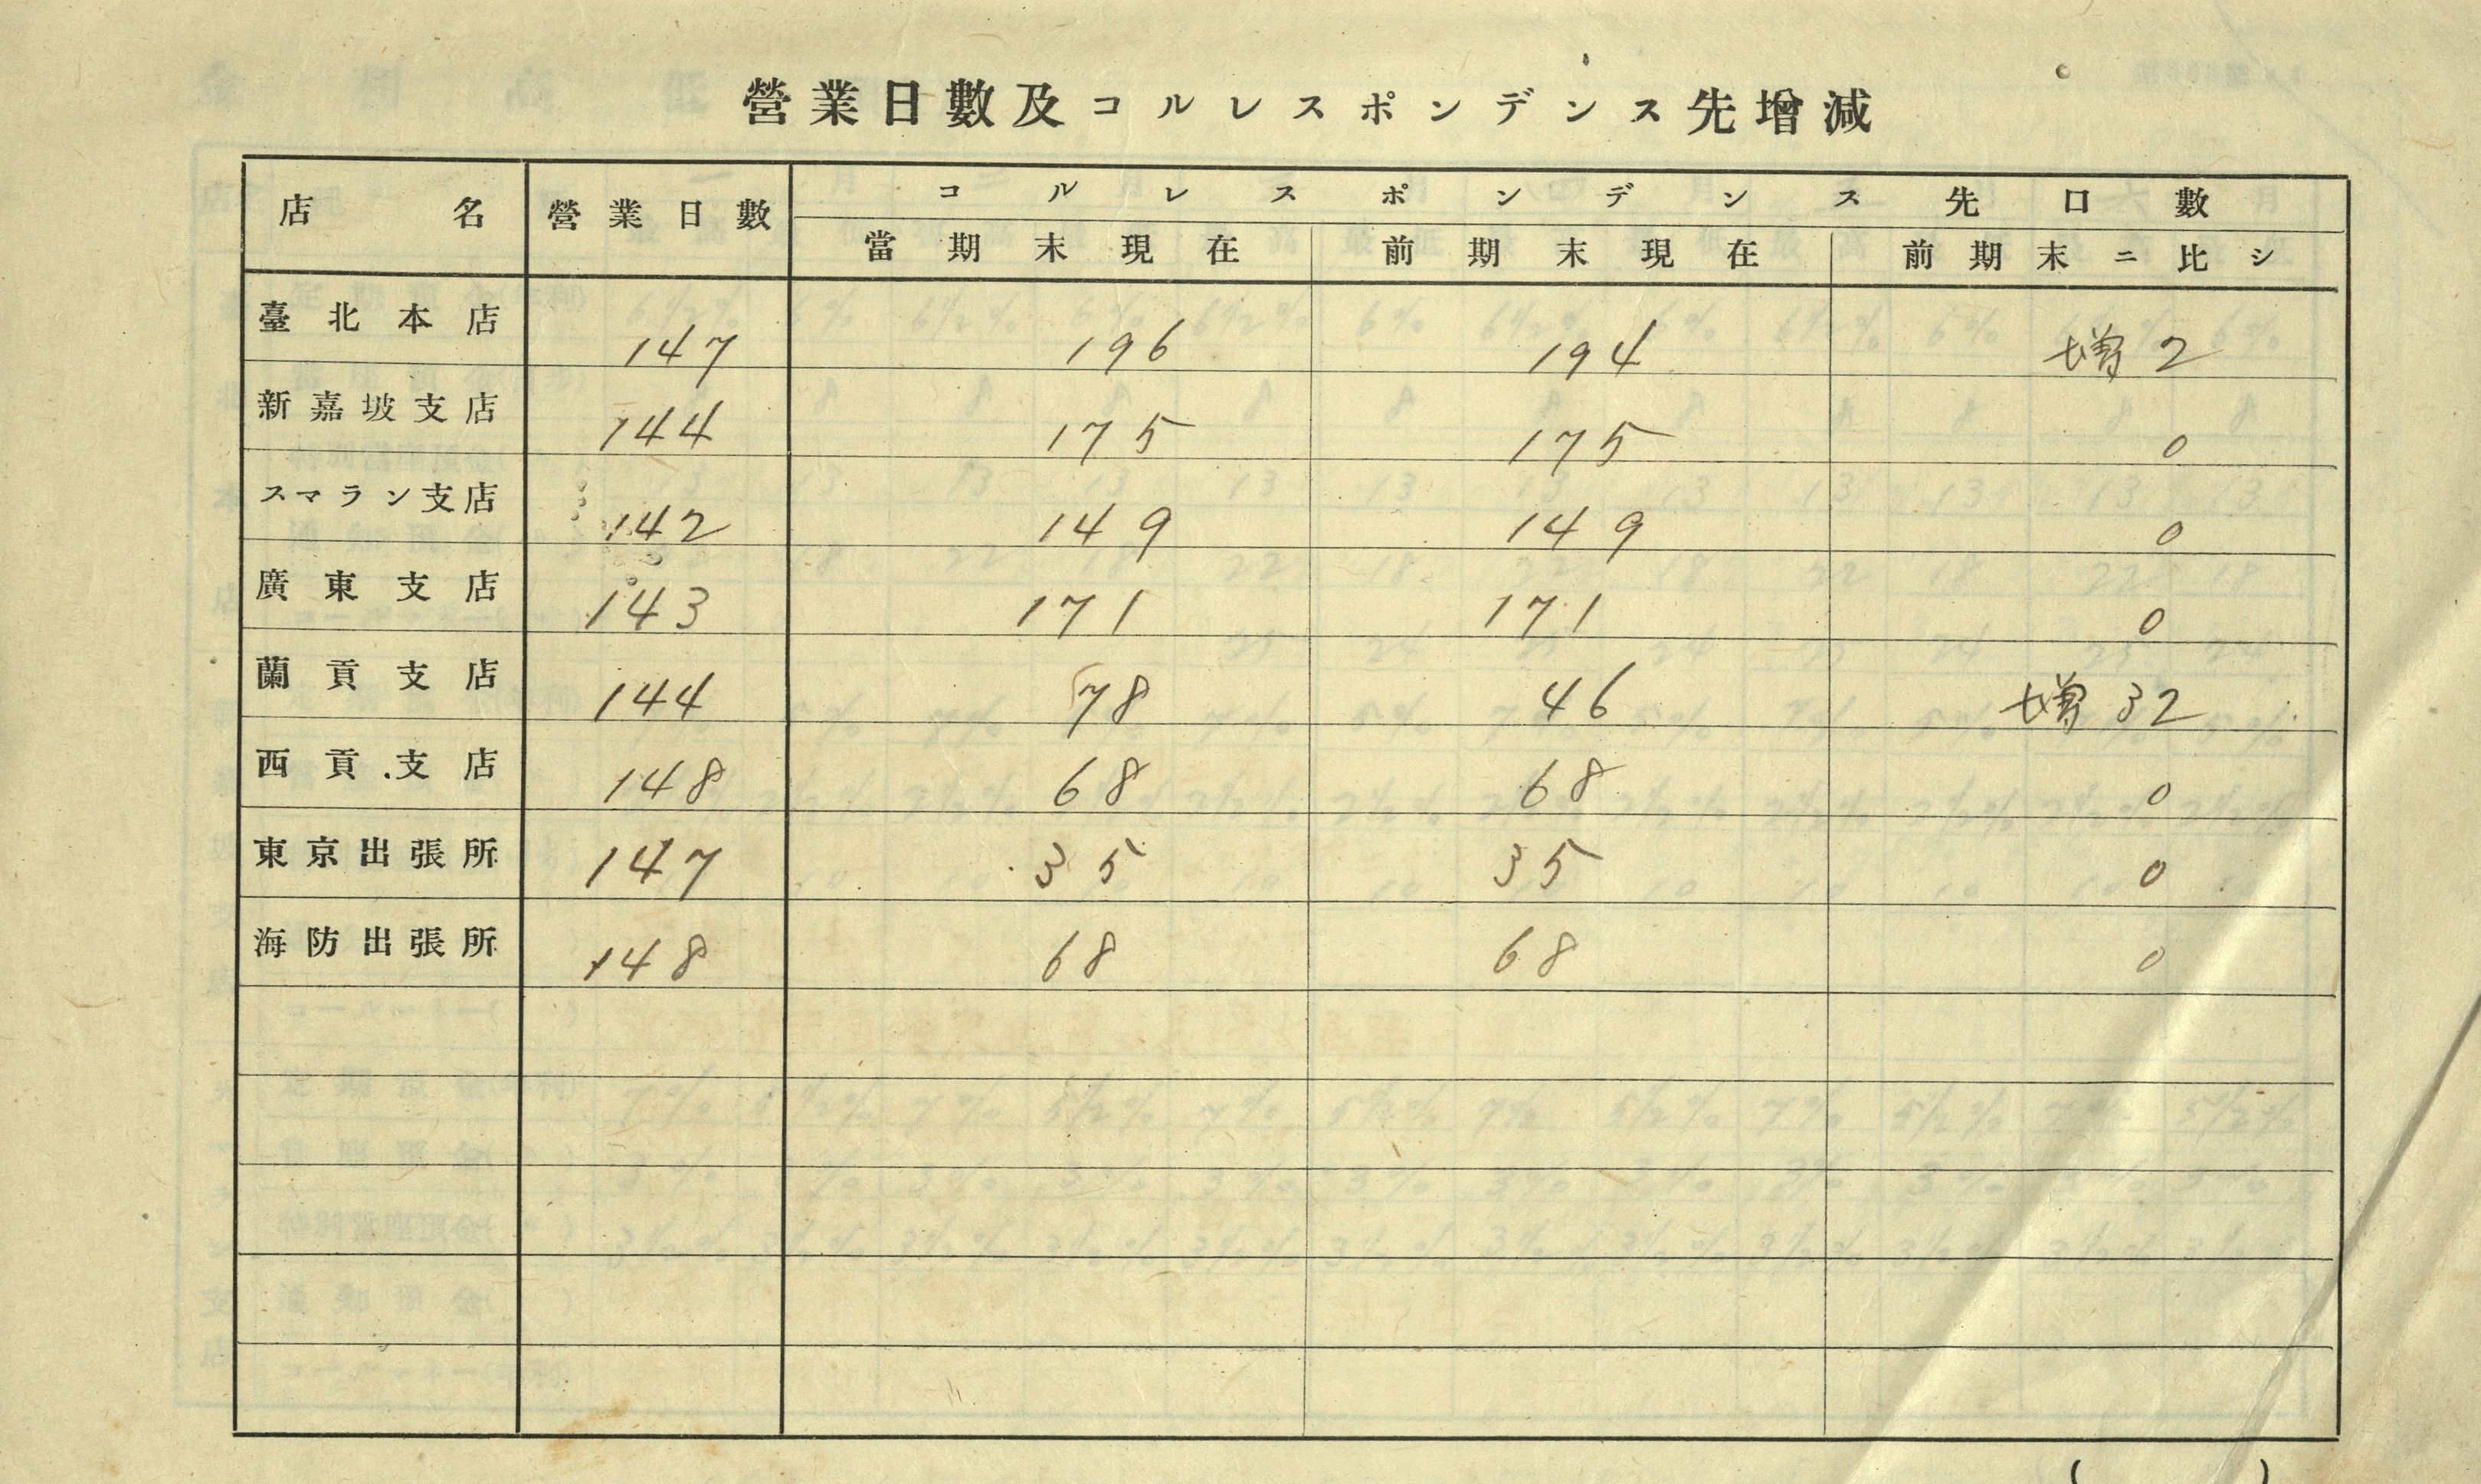 營業日數及コルレスポンデンス先增減
店名 營業日數 コルレスポンデンス先口數
當期末現在 前期末現在 前期末ニ比シ
臺北本店 147 196 194 增 2
新嘉坡支店 144 175 175 0
スマラン支店 142 149 149 0
廣東支店 143 171 171 0
蘭貢支店 144 78 46 增 32
西貢支店 148 68 68 0
東京出張所 147 35 35 0
海防出張所 148 68 68 0
( )